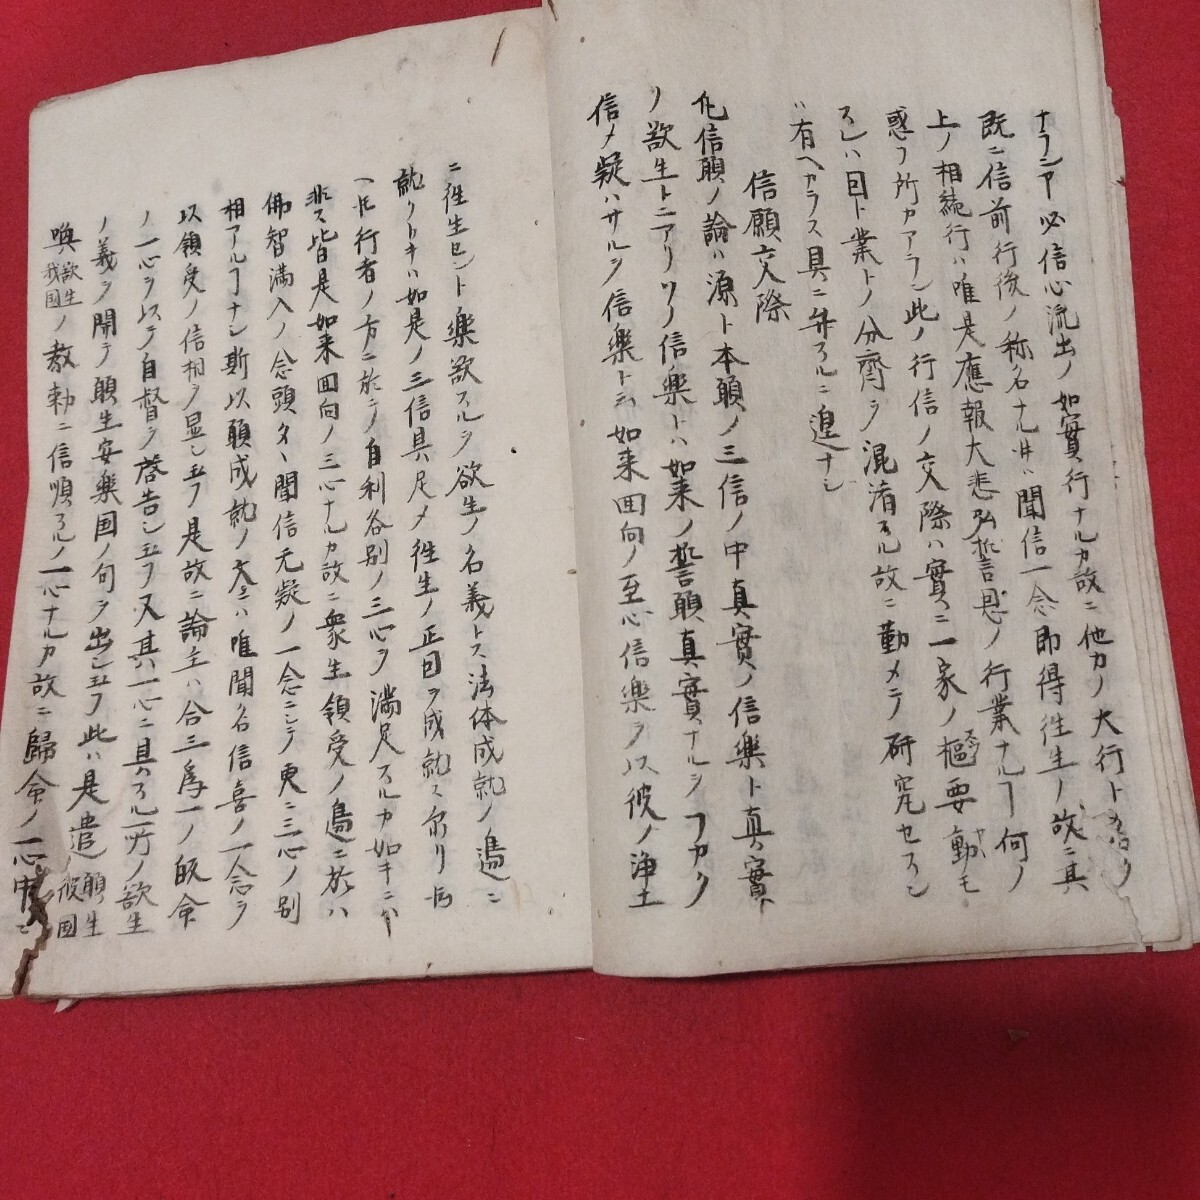 ナラシテ必信心流出ノ如實行ナルカ故ニ他力ノ大行ト名ク
既ニ信前行後ノ称名ナル井ハ聞信一念即得往生ノ故ニ其
上ノ相続行ハ唯是應報大悲弘誓恩ノ行業ナルヿ何ノ
惑フ所カアラン此ノ行信ノ交際ハ實ニ一家ノ樞要動モ
スレハ因ト業トノ分齊ヲ混淆スル故ニ勤メテ研究セスン
ハ有ヘカラス具ニ弁スルニ遑ナシ
信願交際
凡信願ノ論ハ源ト本願ノ三信ノ中真實ノ信樂ト真實
ノ欲生トニアリソノ信樂トハ如来ノ誓願真實ナルヲフカク
信メ疑ハサルヲ信樂ト云如来回向ノ至心信樂ヲ以彼ノ浄土
ニ往生セント樂欲スルヲ欲生ノ名義トス法体成就ノ邉ニ
就クトキハ如是ノ三信具足メ往生ノ正因ヲ成就ス尓リ
ヘ圧行者ノ方ニ於テノ自利各別ノ三心ヲ満足スルカ如キニハ
非ス皆是如来回向ノ三心ナルカ故ニ衆生領受ノ邉ニ於ハ
佛智満入ノ念頭タヽ聞信无疑ノ一念ニシテ更ニ三心ノ別
相アルヿナシ斯以願成就ノ文ニハ唯聞名信喜ノ一念ヲ
以領受ノ信相ヲ显シ玉フ是故ニ論主ハ合三為一ノ帰命
ノ一心ヲ以テ自督ヲ啓告シ玉フ又其一心ニ具スル所ノ欲生
ノ義ヲ開テ願生安樂国ノ句ヲ出シ玉フ此ハ是遣喚ノ願生彼国
欲生我国ノ教勅ニ信順スルノ一心ナルカ故ニ歸命ノ一心中ニ